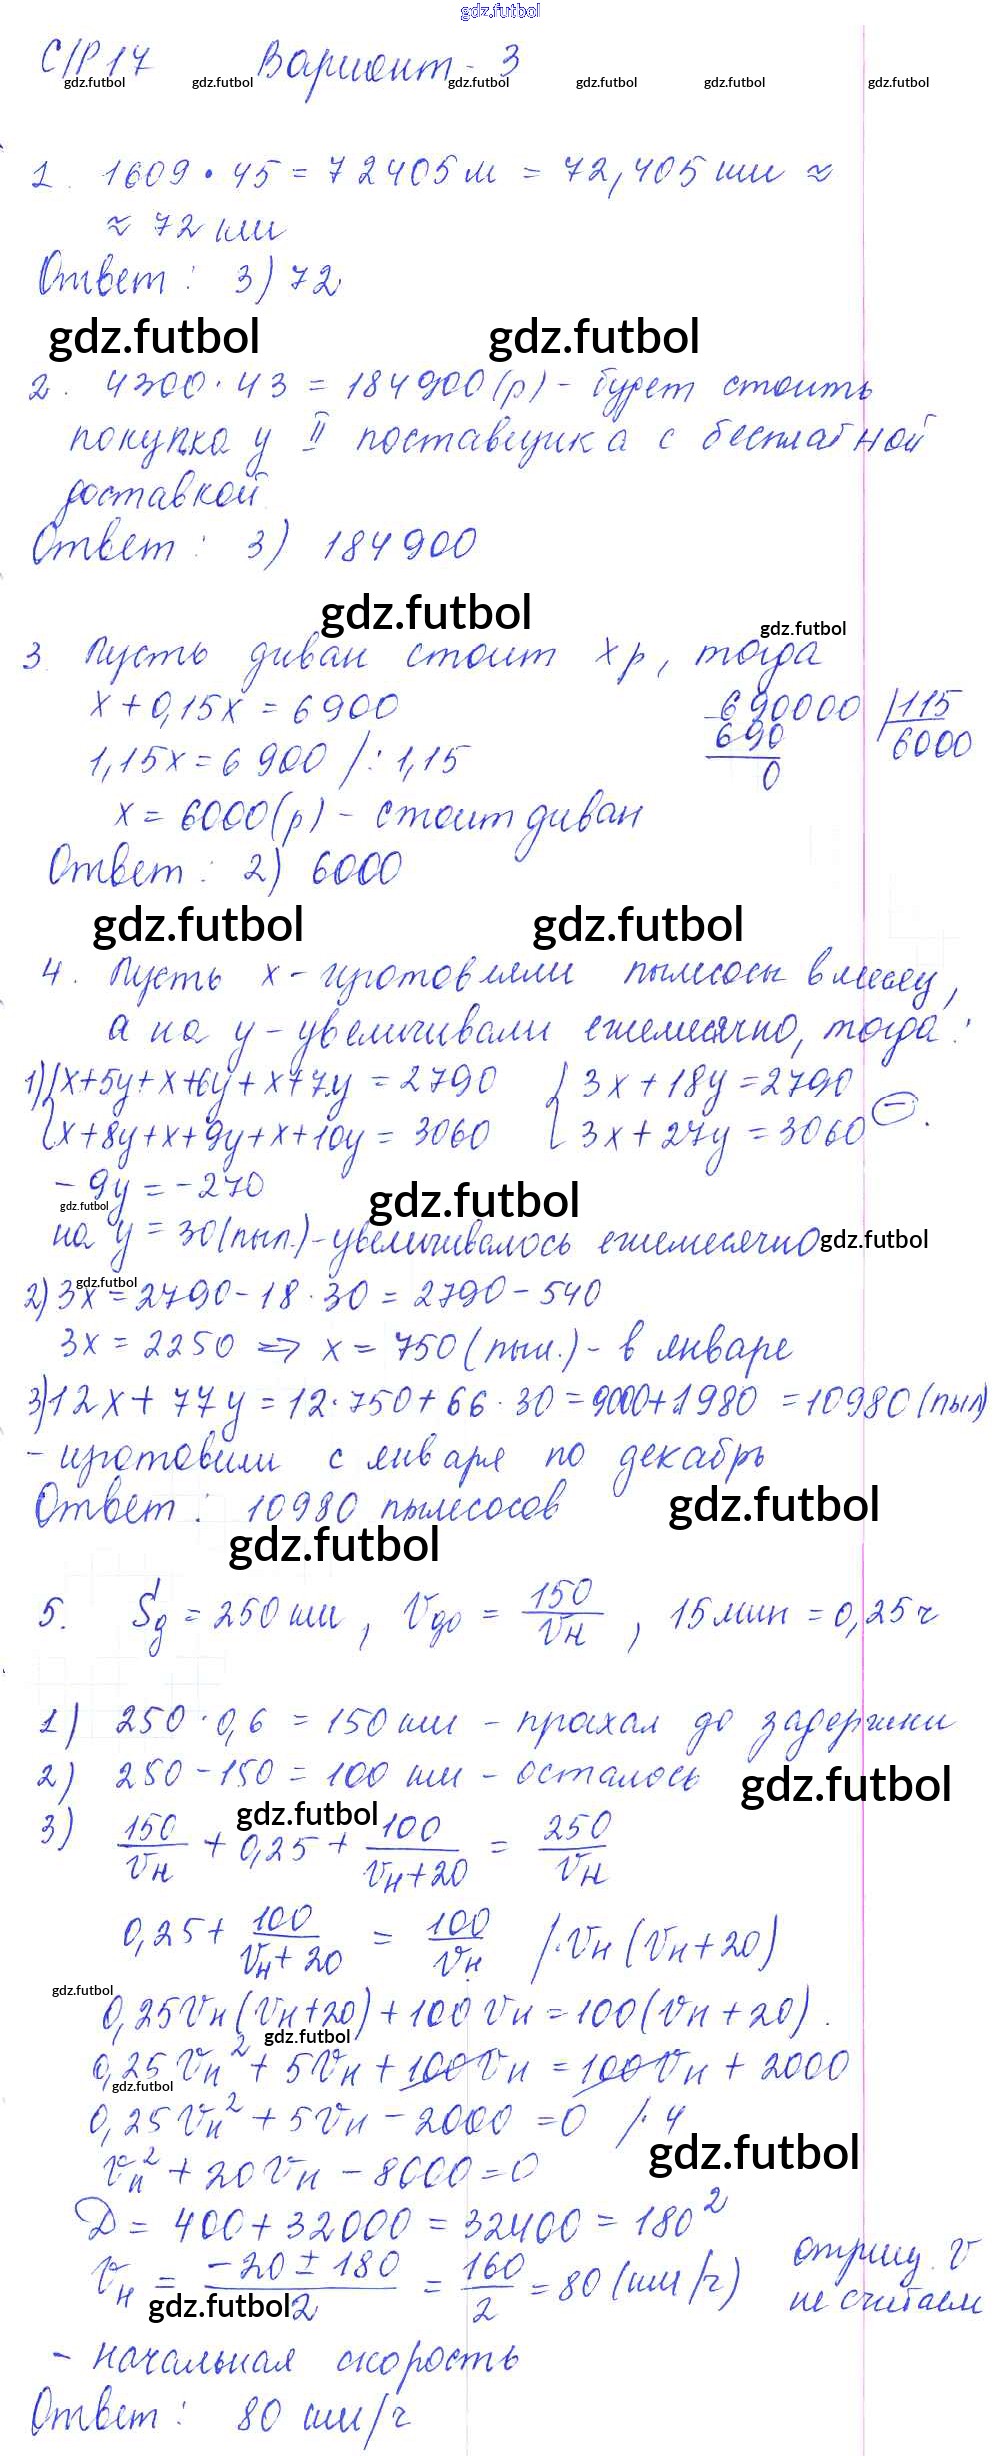 gdz.futbol
С/Р 17 Вариант - 3
gdz.futbol gdz.futbol gdz.futbol gdz.futbol gdz.futbol gdz.futbol
1. 1609 · 45 = 72405 м = 72,405 км ≈
≈ 72 км
Ответ: 3) 72
gdz.futbol gdz.futbol
2. 4300 · 43 = 184900 (р) - будет стоить
покупка у II поставщика с бесплатной
доставкой
Ответ: 3) 184900
gdz.futbol
gdz.futbol
3. Пусть диван стоит x р, тогда
x + 0,15x = 6900
690000 | 115
1,15x = 6900 /: 1,15
690 6000
0
x = 6000 (р) - стоит диван
Ответ: 2) 6000
gdz.futbol gdz.futbol
4. Пусть x - изготовляли пылесосы в месяц,
а на y - увеличивали ежемесячно, тогда:
1) { x + 5y + x + 6y + x + 7y = 2790 { 3x + 18y = 2790
{ x + 8y + x + 9y + x + 10y = 3060 { 3x + 27y = 3060 (-).
- 9y = - 270
gdz.futbol gdz.futbol
на y = 30 (пыл.) - увеличивалось ежемесячно
gdz.futbol
gdz.futbol
2) 3x = 2790 - 18 · 30 = 2790 - 540
3x = 2250 => x = 750 (пыл.) - в январе
3) 12x + 77y = 12 · 750 + 66 · 30 = 9000 + 1980 = 10980 (пыл)
- изготовили с января по декабрь
Ответ: 10980 пылесосов
gdz.futbol
gdz.futbol
5. Sд = 250 км, Vдо = 150/Vн, 15 мин = 0,25 ч
1) 250 · 0,6 = 150 км - проехал до задержки
2) 250 - 150 = 100 км - осталось
gdz.futbol
gdz.futbol
3) 150/Vн + 0,25 + 100/(Vн + 20) = 250/Vн
0,25 + 100/(Vн + 20) = 100/Vн /· Vн (Vн + 20)
gdz.futbol
0,25 Vн (Vн + 20) + 100 Vн = 100 (Vн + 20).
gdz.futbol
0,25 Vн² + 5Vн + 100Vн = 100Vн + 2000
gdz.futbol
0,25 Vн² + 5Vн - 2000 = 0 /· 4
gdz.futbol
Vн² + 20Vн - 8000 = 0
D = 400 + 32000 = 32400 = 180²
Vн = (-20 ± 180)/2 = 160/2 = 80 (км/ч) отриц. V
не считаем
gdz.futbol
- начальная скорость
Ответ: 80 км/ч